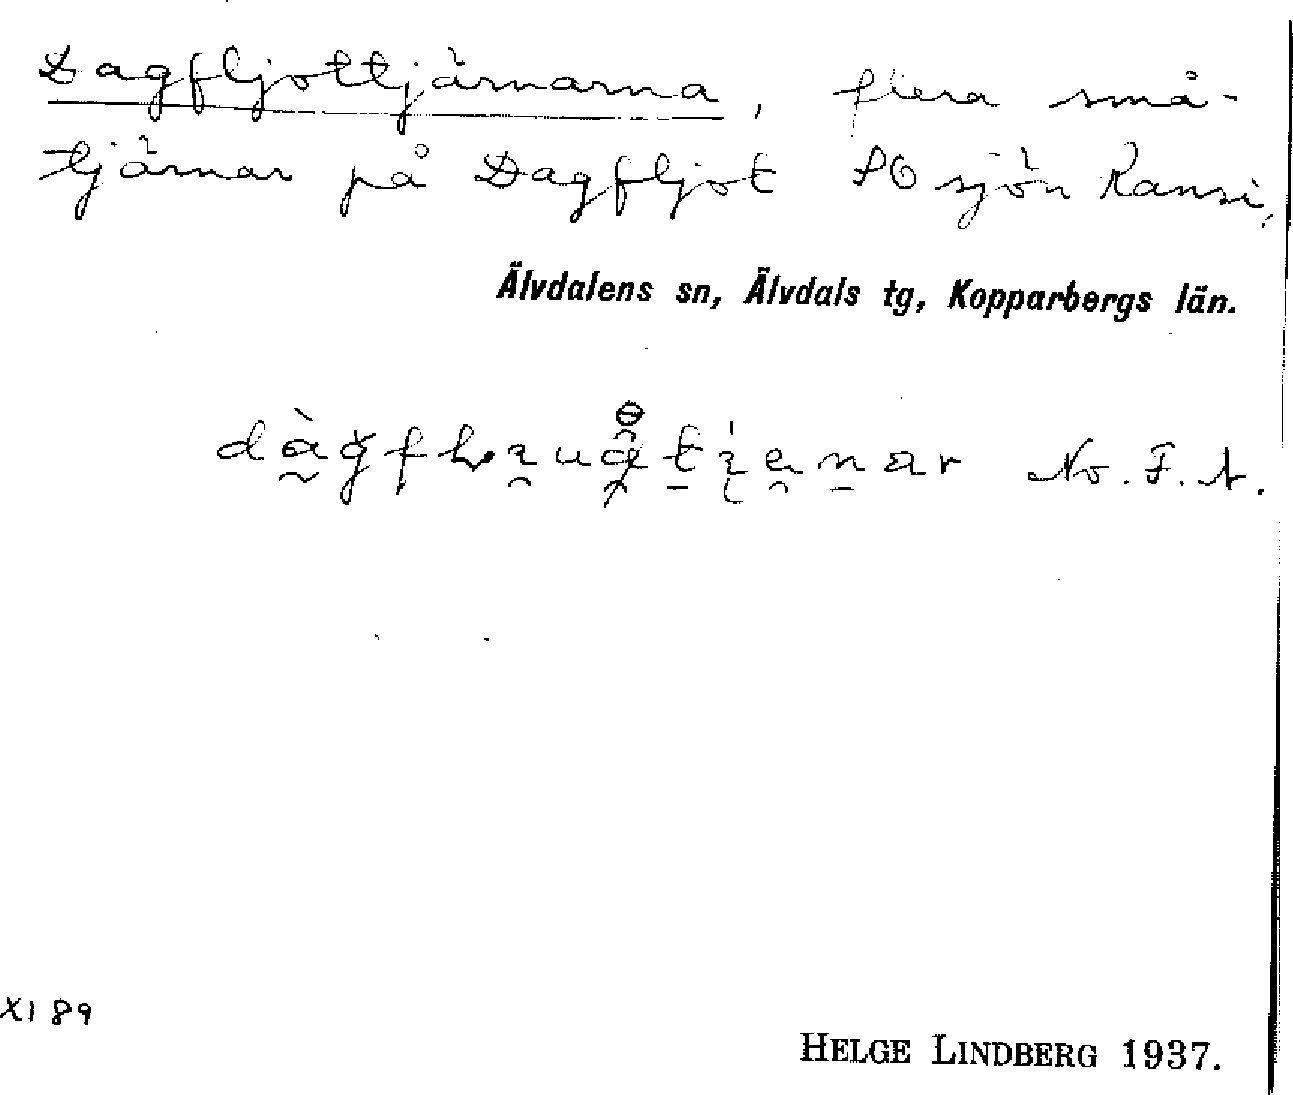 Dagfljottjärnarna, flera små-
tjärnar på Dagfljot SO sjön Ransi,
Älvdalens sn, Älvdals tg, Kopparbergs län.
No. F. A.
XI 89
HELGE LINDBERG 1937.